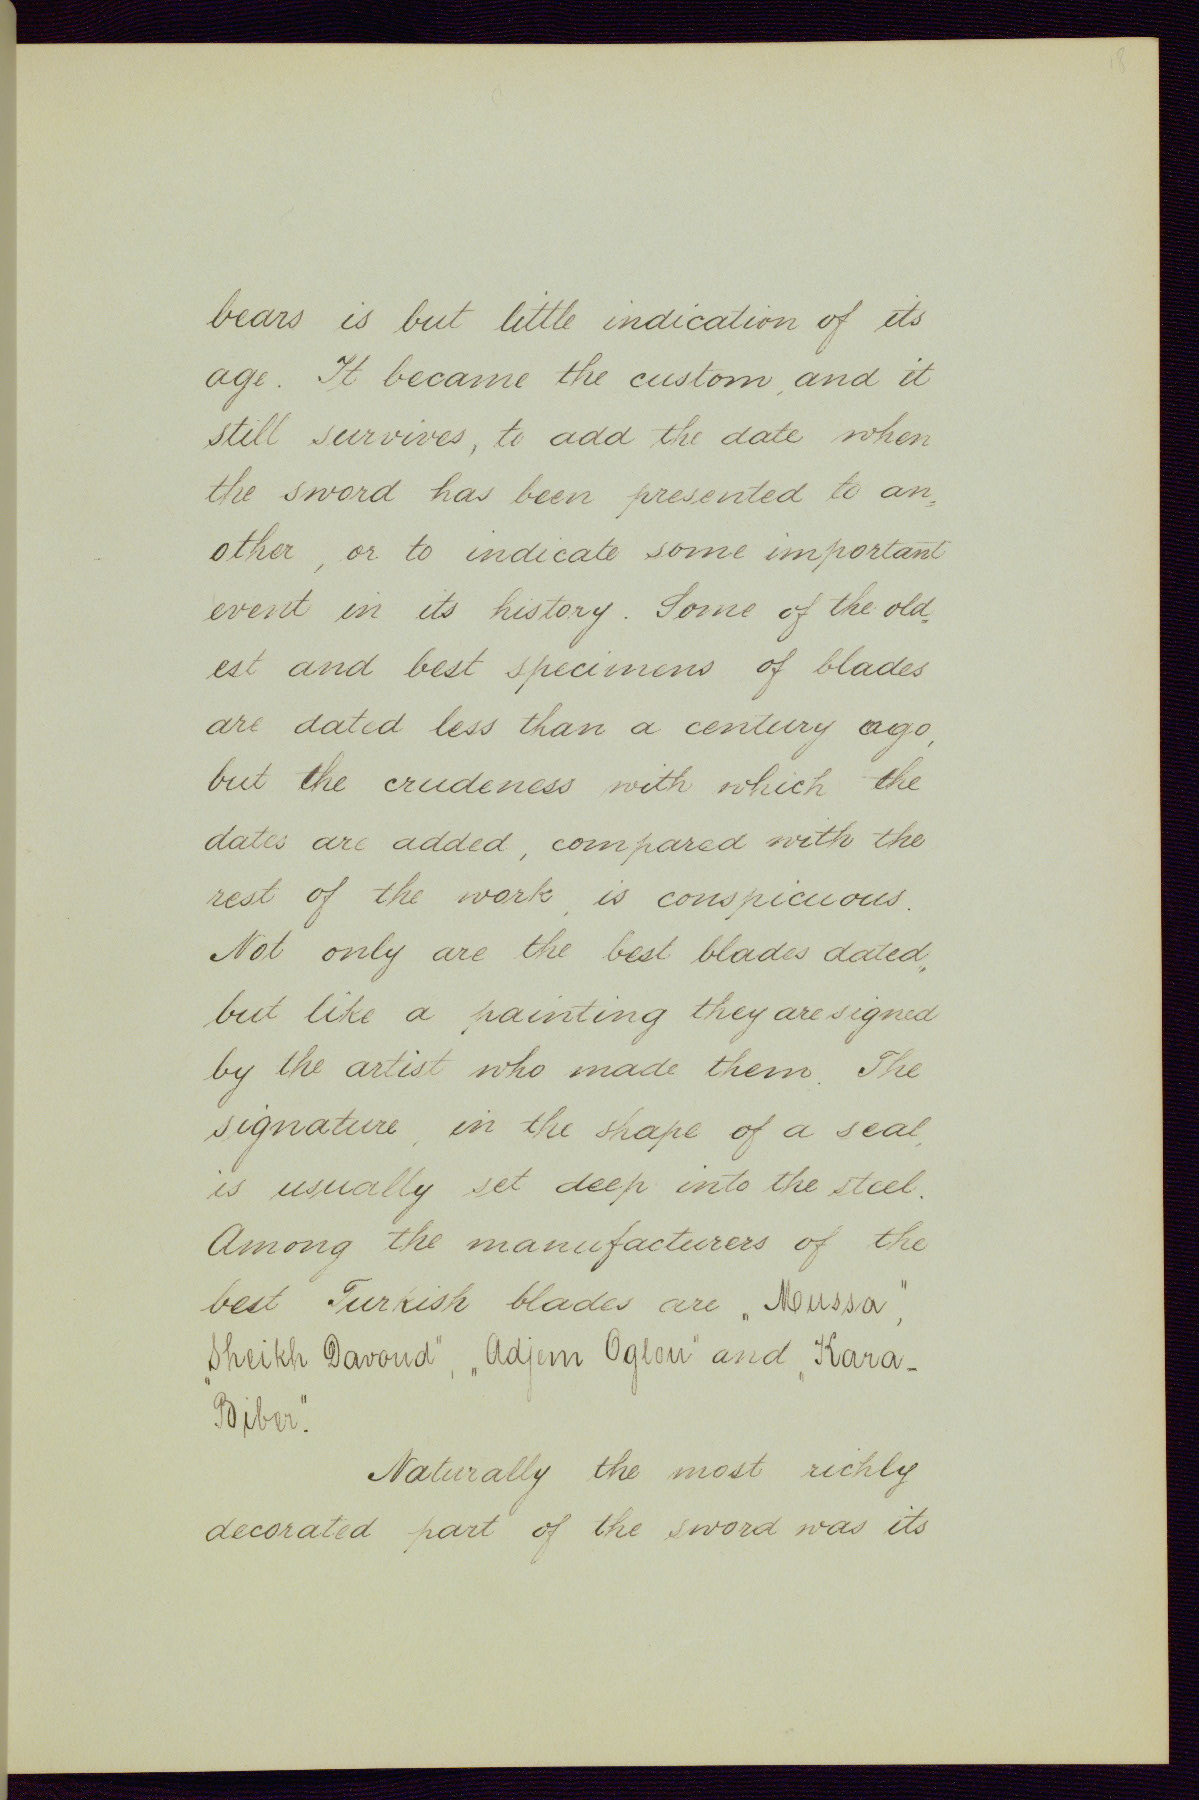 18
bears is but little indication of its
age. It became the custom, and it
still survives, to add the date when
the sword has been presented to an=
other, or to indicate some important
event in its history. Some of the old=
est and best specimens of blades
are dated less than a century ago,
but the crudeness with which the
dates are added, compared with the
rest of the work, is conspicuous.
Not only are the best blades dated,
but like a painting they are signed
by the artist who made them. The
signature, in the shape of a seal,
is usually set deep into the steel.
Among the manufacturers of the
best Turkish blades are „Mussa",
„Sheikh Davoud", „Adjem Oglou" and „Kara-
Biber".
Naturally the most richly
decorated part of the sword was its